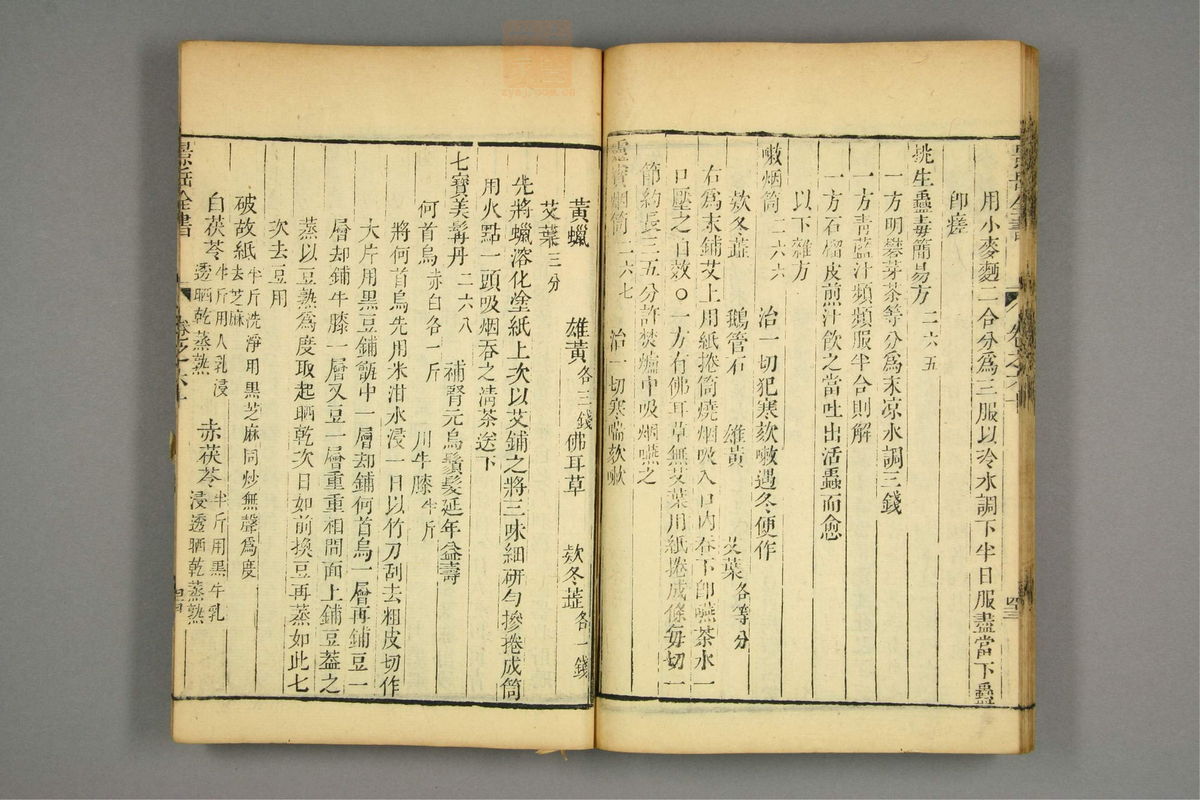 用小麥麵二合分爲三服以冷水調下半日服盡當下蠱
即瘥
挑生蠱毒簡易方 二六五
一方明礬芽茶等分爲末凉水調三錢
一方靑藍汁頻頻服半合則解
一方石榴皮煎汁飲之當吐出活蟲而愈
以下雜方
嗽烟筒 二六六 治一切犯寒欬嗽遇冬便作
欸冬蕋 鵝管石 雄黃 艾葉各等分
右爲末鋪艾上用紙捲筒燒烟吸入口內吞下即嚥茶水一
口壓之自效○一方有佛耳草無艾葉用紙捲成條每切一
節約長三五分許焚爐中吸烟嚥之
靈寶烟筒 二六七 治一切寒喘欬嗽
四三
黃蠟 雄黃各三錢 佛耳草 欵冬蕋各一錢
艾葉三分
先將蠟溶化塗紙上次以艾鋪之將三味細研勻摻捲成筒
用火點一頭吸烟吞之淸茶送下
七寶美髯丹 二六八 補腎元烏鬚髮延年益壽
何首烏赤白各一斤 川牛膝半斤
將何首烏先用米泔水浸一日以竹刀刮去粗皮切作
大片用黑豆鋪甑中一層却鋪何首烏一層再鋪豆一
層却鋪牛膝一層又豆一層重重相間面上鋪豆葢之
蒸以豆熟爲度取起晒乾次日如前換豆再蒸如此七
次去豆用
破故紙半斤洗淨用黑芝麻同炒無聲爲度去芝麻
白茯苓半斤用人乳浸透晒乾蒸熟 赤茯苓半斤用黑牛乳浸透晒乾蒸熟
景岳全書
四四